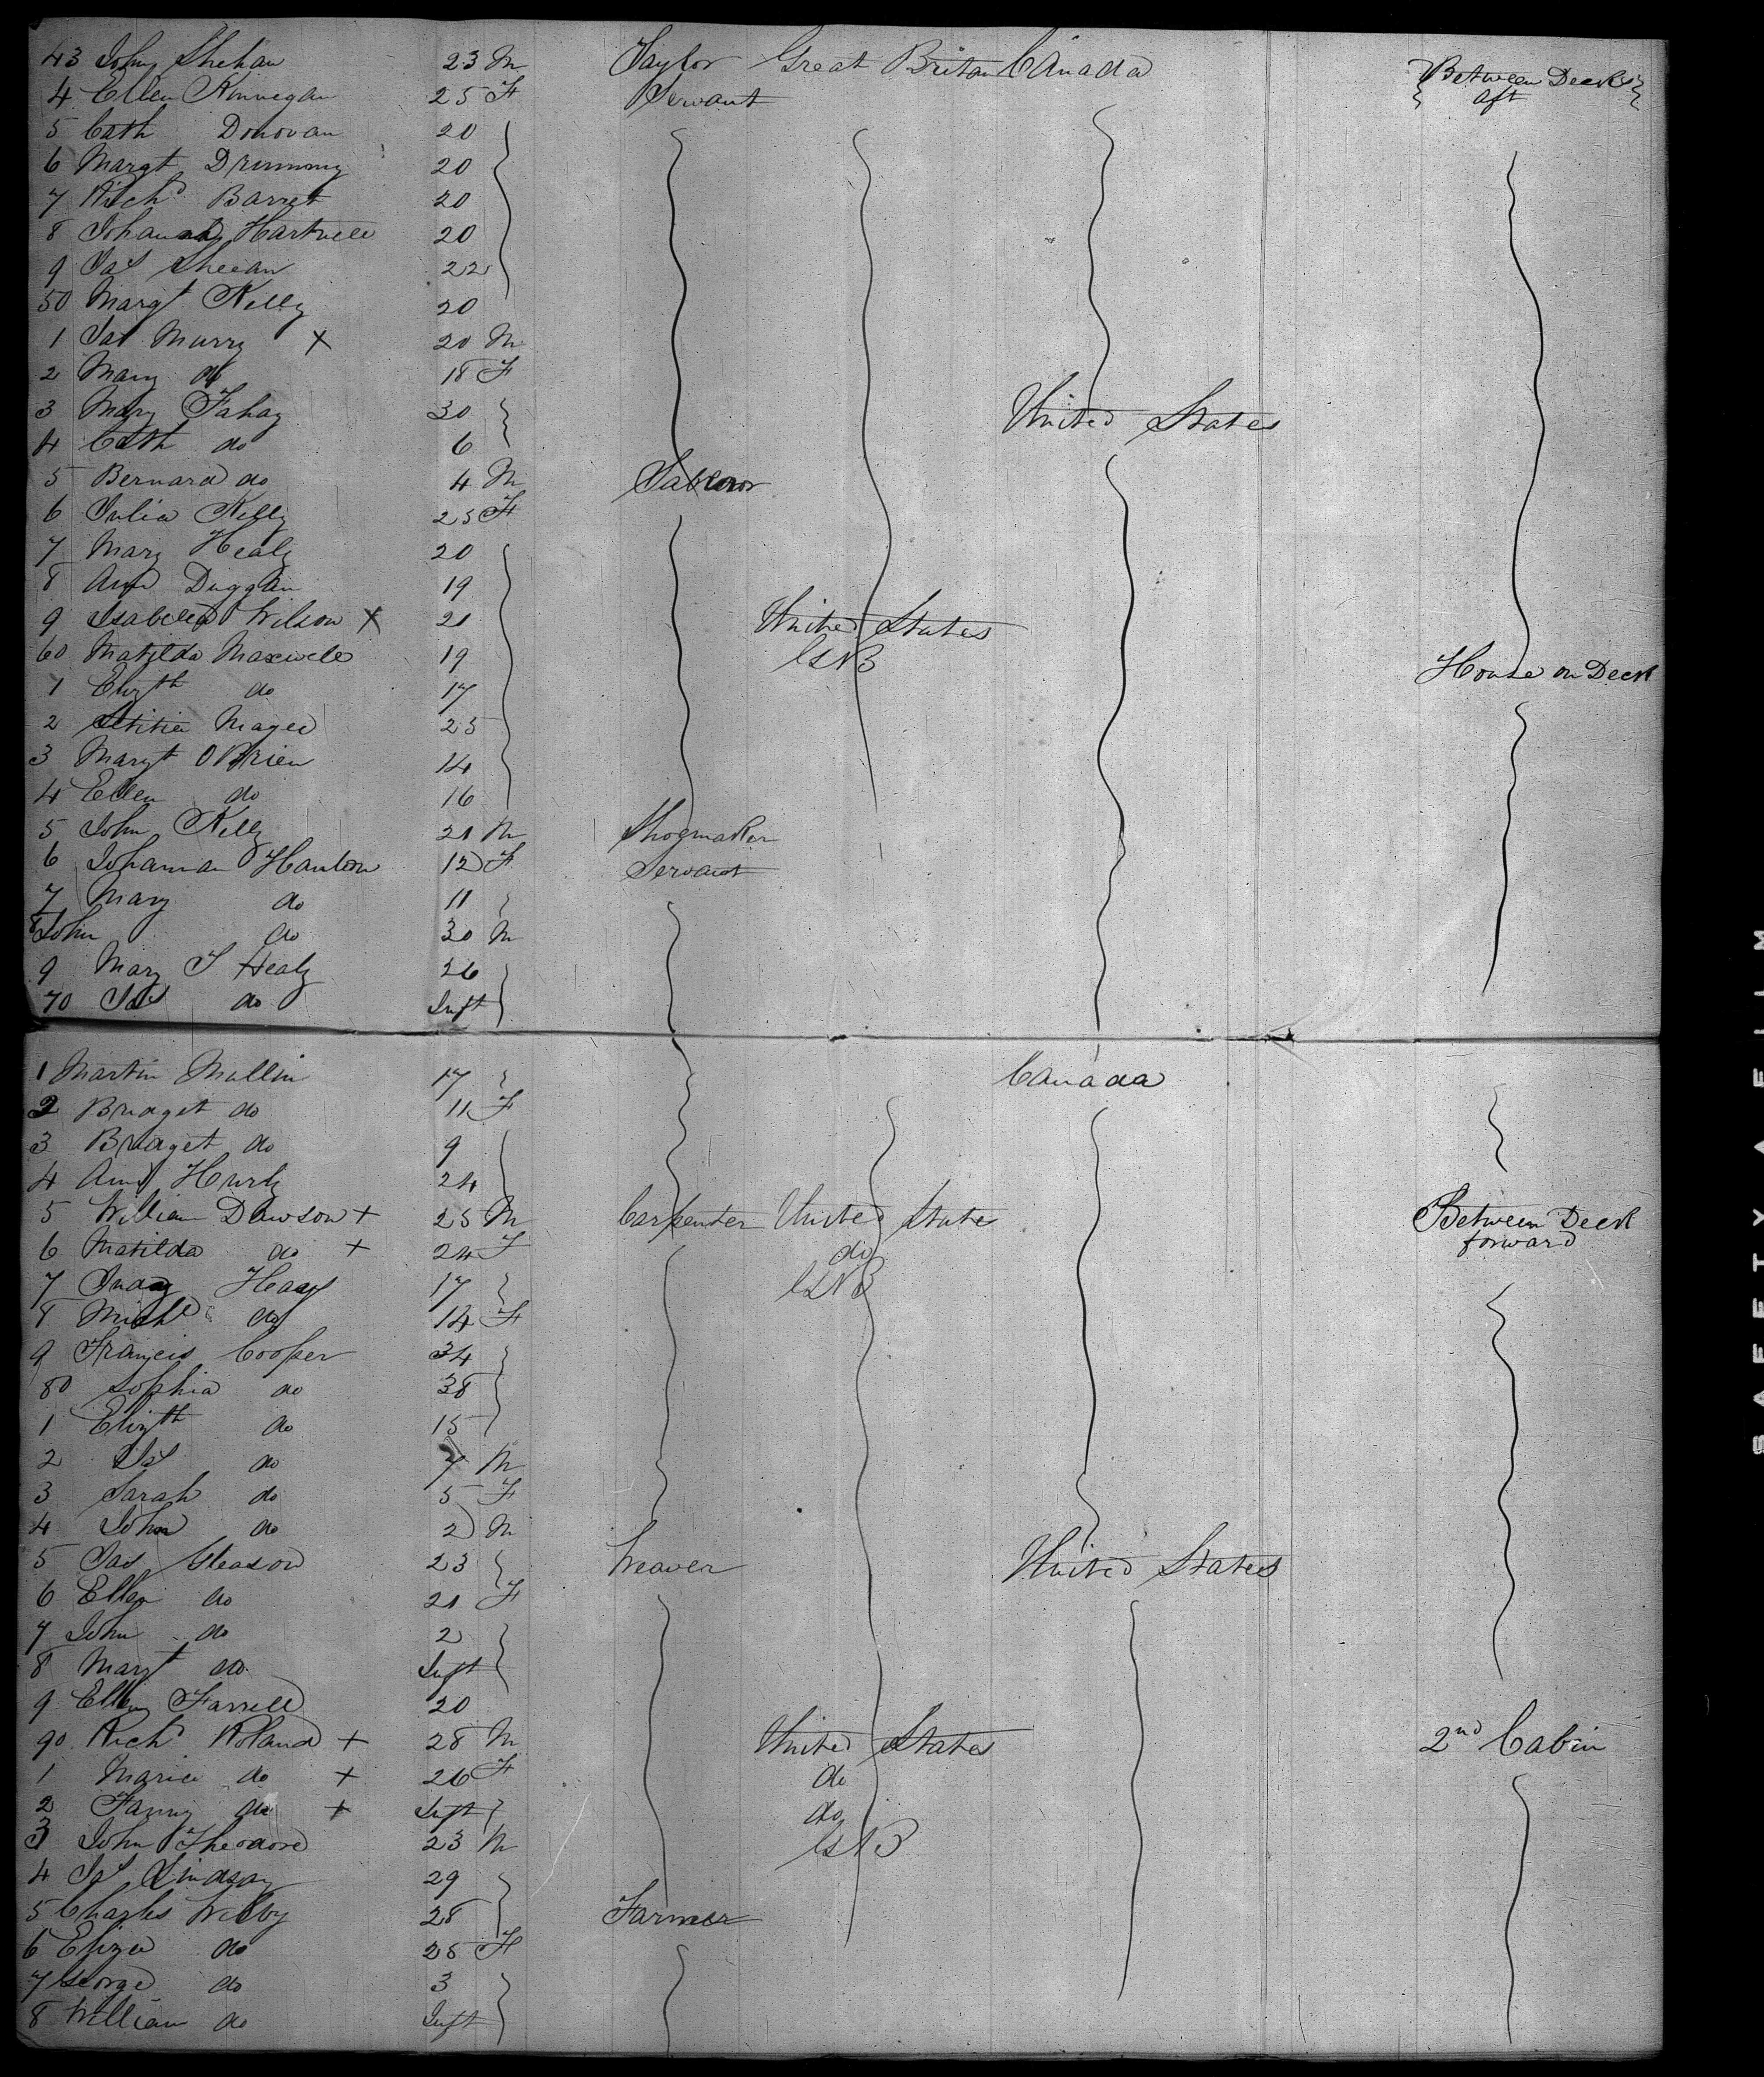 43 John Shehan 23 M Taylor Great Britan Canada Between Decks
4 Ellen Kinnegan 25 F Servant aft
5 Cath Donovan 20
6 Margt Drummy 20
7 Richd Barret 20
8 Johannah Hartnell 20
9 Jas Sheean 22
50 Margt Kelly 20
1 Jas Murry X 20 M
2 Mary do 18 F
3 Mary Fahay 30 United States
4 Cath do 6
5 Bernard do 4 M Laborer
6 Julia Kelly 25 F
7 Mary Healy 20
8 Ann Duggan 19
9 Isabella Wilson X 21 United States
60 Matilda Maxwell 19 GNB House on Deck
1 Elizth do 17
2 Letitia Magee 25
3 Margt OBrien 14
4 Ellen do 16
5 John Kelly 21 M Shoemaker
6 Johannah Hanlon 12 F Servant
7 Mary do 11
8 John do 30 M
9 Mary J Healy 26
70 Jas do Inft
1 Martin Mullin 17 Canada
2 Bridget do 11 F
3 Bridget do 9
4 Ann Hurly 24
5 William Dawson + 25 M Carpenter United States Between Deck
6 Matilda do + 24 F do forward
7 Judy 17 GNB
8 Michl do 14 F
9 Francis Cooper 34
80 Sophia do 38
1 Elizth do 15
2 Jas do 7 M
3 Sarah do 5 F
4 John do 2 M
5 Jas Gleason 23 Weaver United States
6 Ellen do 21 F
7 John do 2
8 Margt do Inft
9 Ellen Farrell 20
90 Richd Roland + 28 M United States 2nd Cabin
1 Maria do + 26 F do
2 Fanny do + Inft do
3 John Theodore 23 M GNB
4 Jas Lindsay 29
5 Charles Wilby 28 Farmer
6 Eliza do 25 F
7 George do 3
8 William do Inft
SAFETY FILM